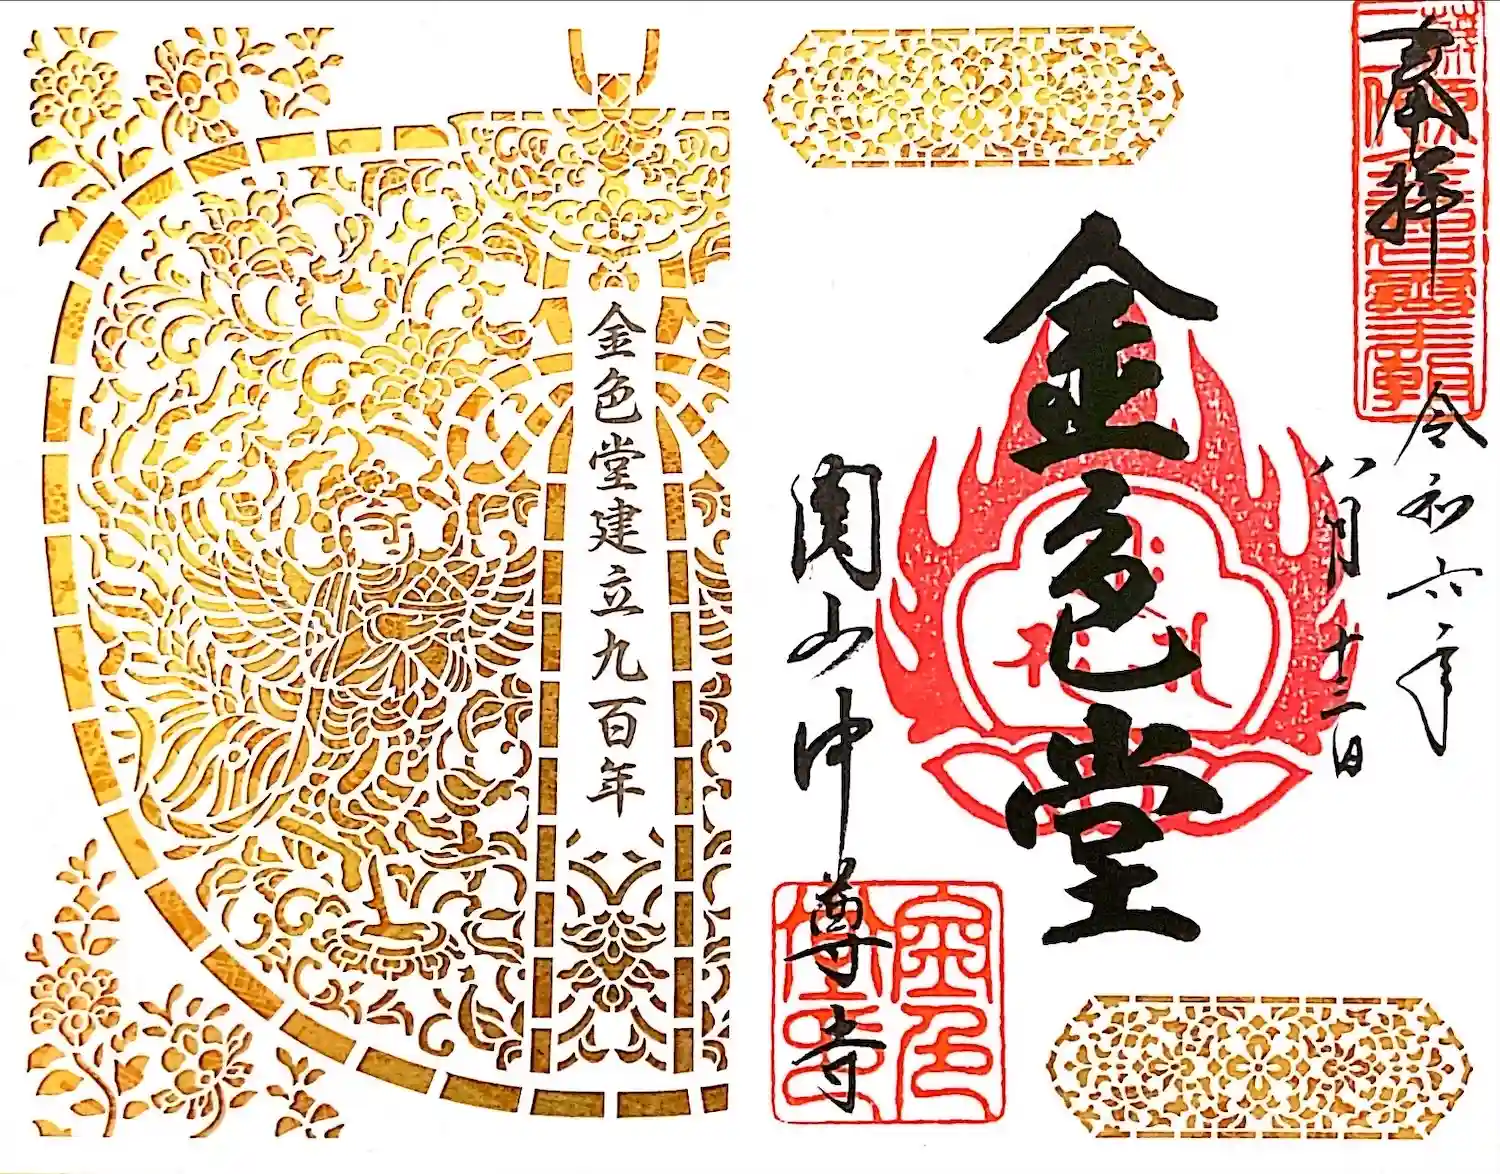 奉拝
令和六年
八月十三日
金色堂
関山中尊寺
金色堂建立九百年